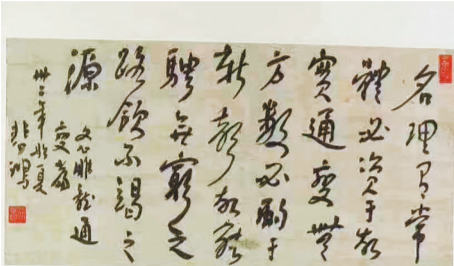 名理有常
體必資于故
實通變無
方數必酌于
新聲故能
騁无窮之
路飲不竭之
源
文心雕龍通
變篇
年夏
悲鴻